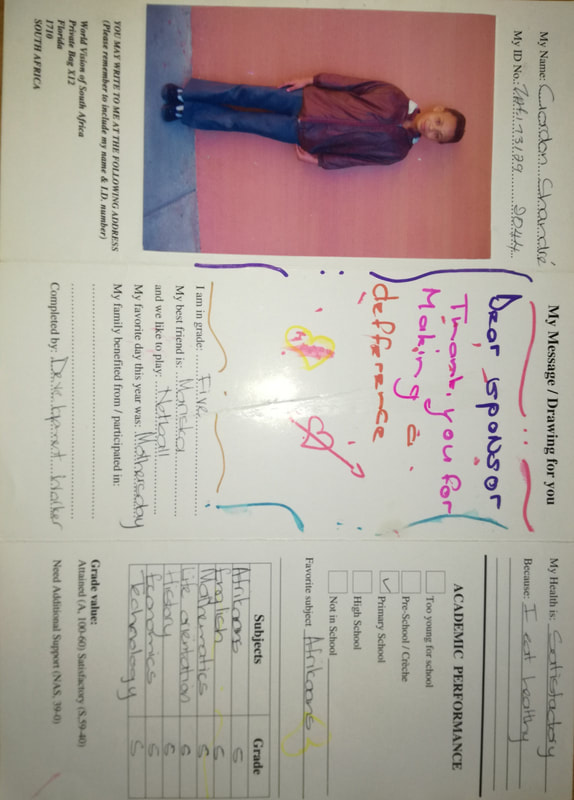 My Name: Gordon Shandé
My ID No.: ZAF 173129 2044
YOU MAY WRITE TO ME AT THE FOLLOWING ADDRESS
(Please remember to include my name & I.D. number)
World Vision of South Africa
Private Bag X12
Florida
1710
SOUTH AFRICA
My Message / Drawing for you
Dear sponsor
Thank you for
Making a
defference
I am in grade: Five
My best friend is: Mariska
and we like to play: Netball
My favorite day this year was: Mothersday
My family benefited from / participated in:
Completed by: Development Worker
My Health is: Satisfactory
Because: I eat healthy
ACADEMIC PERFORMANCE
Too young for school
Pre-School / Crèche
Primary School
High School
Not in School
Favorite subject Afrikaans
Subjects Grade
Afrikaans S
English S
Mathematics S
Life orientation S
History S
Economics S
Technology S
Grade value:
Attained (A, 100-60) Satisfactory (S,59-40)
Need Additional Support (NAS, 39-0)